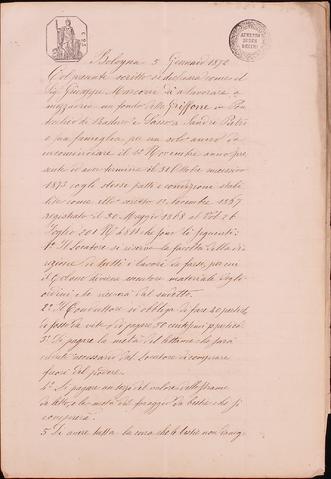 Bologna 5 Gennaio 1872
Col presente scritto si dichiara come il
Sig. Giuseppe Marconi dà a lavorare a
mezzadria un fondo detto Griffone in
e Sasso a Sandri Pietro
e sua famiglia per un solo anno da
incominciare il 1° Novembre anno pres
ente ed aver termine il 31 Ottobre successivo
1873 cogli stessi patti e condizioni stabi
lite come alla scritta 12 Novembre 1857
registrato il 30 Maggio 1868 al Vol. 26
Foglio 201 N. 4811 che sono li seguenti:
1° Il Locatore si riserva la facoltà della di
rezione di tutti i lavori da farsi, per cui
il Colono diviene esecutore materiale degli
ordini che riceverà dal suddetto.
2° Il Conduttore si obbliga di fare 40 pertiche
di fosse da vite e di pagare 50 centesimi p. pertica
3° Di pagare la metà del lettame che sarà
necessario dal Locatore di comprare
fuori del podere.
4° Di pagare un terzo del valore dello strame
da letto, e la metà del foraggio da bestie che si
comprerà.
5 Di avere tutta la cura che le bestie non